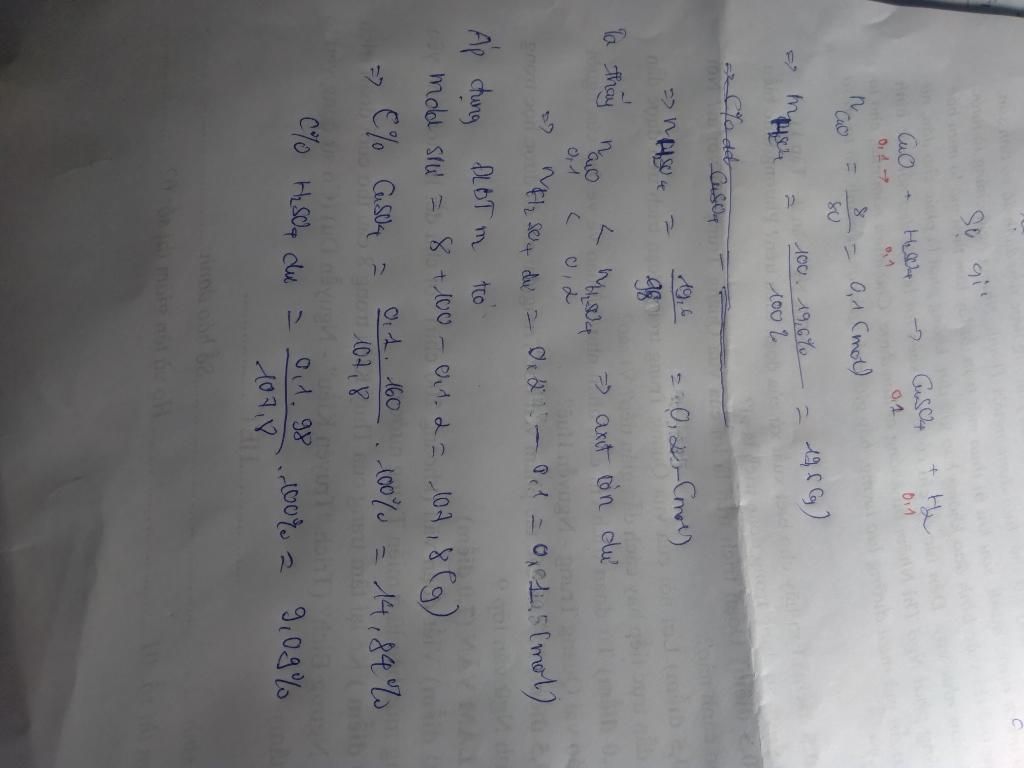 CuO + H₂SO₄ → CuSO₄ + H₂
0,1 → 0,1 0,1 0,1
nCuO = 8/80 = 0,1 (mol)
⇒ mH₂SO₄ = 100.19,6%/100% = 19,6 (g)
⇒ C% dd CuSO₄ =
⇒ nH₂SO₄ = 19,6/98 = 0,2 (mol)
Ta thấy nCuO < nH₂SO₄ ⇒ axit còn dư
0,1 < 0,2
⇒ nH₂SO₄ dư = 0,2 - 0,1 = 0,1 (mol)
Áp dụng ĐLBT m có
mdd sau = 8 + 100 - 0,1.2 = 107,8 (g)
⇒ C% CuSO₄ = 0,1.160/107,8 .100% = 14,84%
C% H₂SO₄ dư = 0,1.98/107,8 .100% = 9,09%